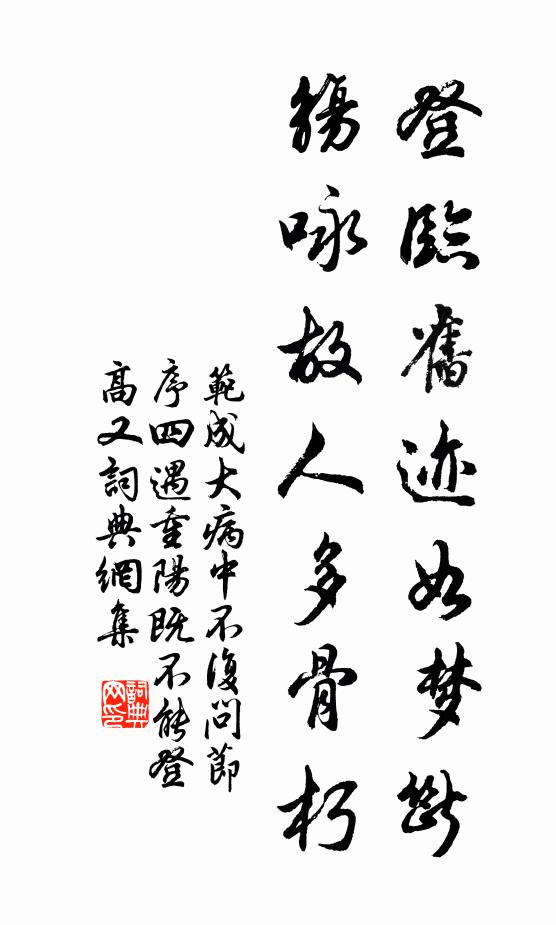 登臨舊迹如梦斷
觴咏故人多骨朽
範成大病中不復問節
序四遇重陽既不能登
高又詞典網集
詞典网印